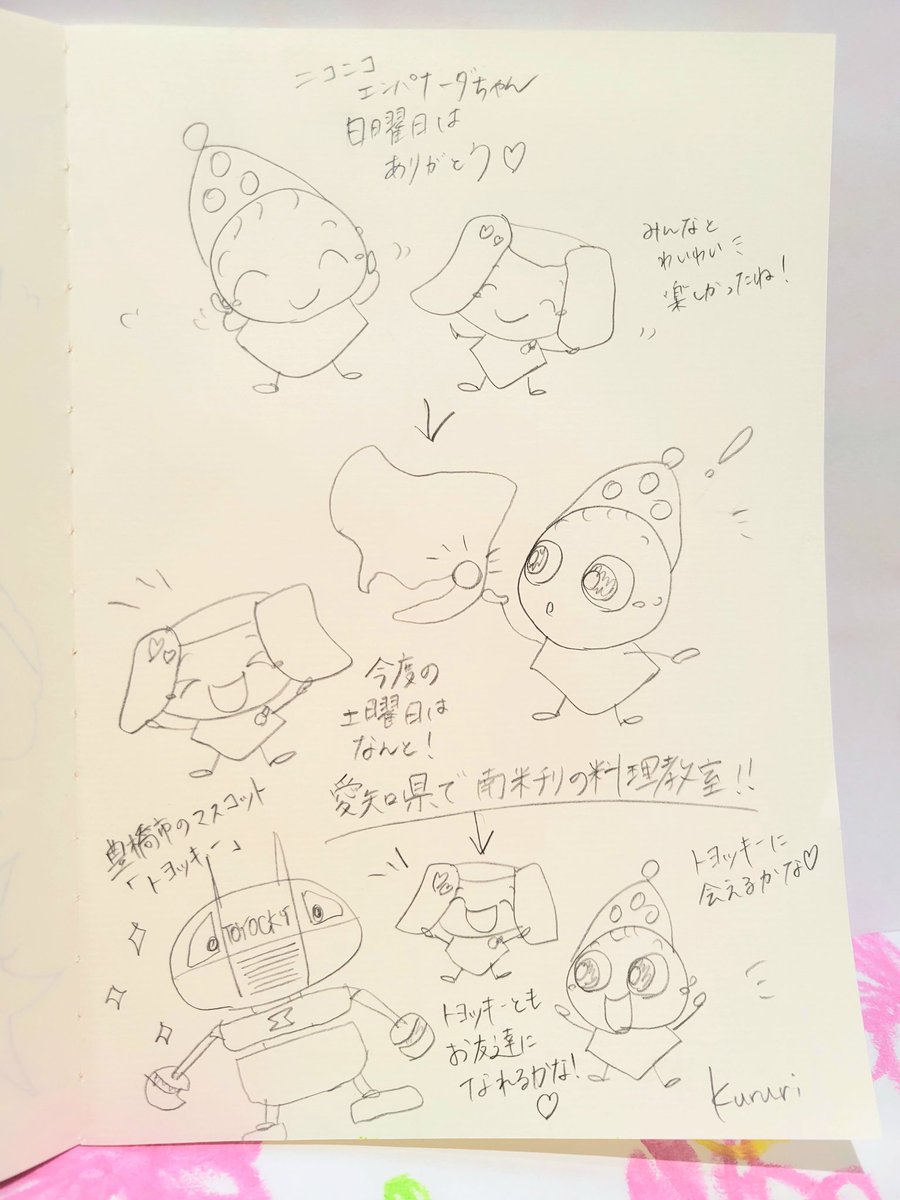 ニコニコ
エンパナーダちゃん
日曜日は
ありがとう♡
みんなと
わいわい
楽しかったね!
!
今度の
土曜日は
なんと!
愛知県で南米チリの料理教室!!
豊橋市のマスコット
「トヨッキー」
TOYOCKY
トヨッキーに
会えるかな♡
トヨッキーとも
お友達に
なれるかな!
♡
Kururi